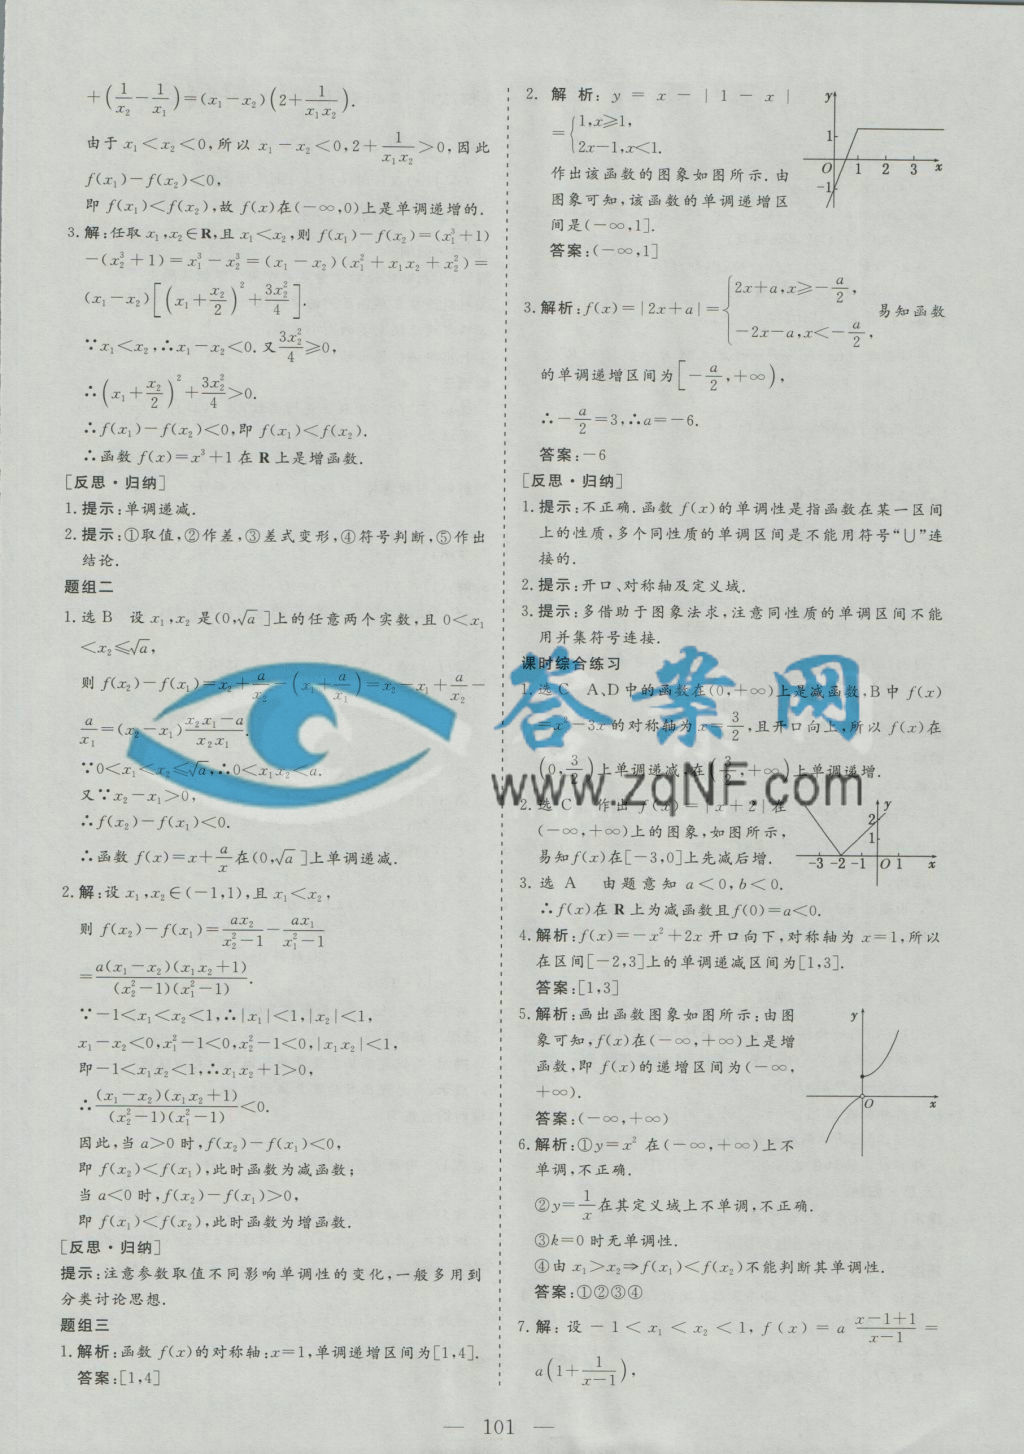 +(1/x₂-1/x₁)=(x₁-x₂)(2+1/(x₁x₂)).
由于 x₁<x₂<0,所以 x₁-x₂<0,2+1/(x₁x₂)>0,因此
f(x₁)-f(x₂)<0,
即 f(x₁)<f(x₂),故 f(x)在(-∞,0)上是单调递增的.
3.解:任取 x₁,x₂∈R,且 x₁<x₂,则 f(x₁)-f(x₂)=(x₁³+1)
-(x₂³+1)=x₁³-x₂³=(x₁-x₂)(x₁²+x₁x₂+x₂²)=
(x₁-x₂)[(x₁+x₂/2)²+3x₂²/4].
∵x₁<x₂,∴x₁-x₂<0.又3x₂²/4≥0,
∴(x₁+x₂/2)²+3x₂²/4>0.
∴f(x₁)-f(x₂)<0,即 f(x₁)<f(x₂).
∴函数 f(x)=x³+1 在 R 上是增函数.
[反思·归纳]
1.提示:单调递减.
2.提示:①取值,②作差,③差式变形,④符号判断,⑤作出
结论.
题组二
1.选 B 设 x₁,x₂ 是(0,√a]上的任意两个实数,且 0<x₁
<x₂≤√a,
则 f(x₂)-f(x₁)=x₂+a/x₂-(x₁+a/x₁)=x₂-x₁+a/x₂-
a/x₁=(x₂-x₁)(x₂x₁-a)/(x₂x₁).
∵0<x₁<x₂≤√a,∴0<x₁x₂<a.
又∵x₂-x₁>0,
∴f(x₂)-f(x₁)<0.
∴函数 f(x)=x+a/x在(0,√a]上单调递减.
2.解:设 x₁,x₂∈(-1,1),且 x₁<x₂,
则 f(x₂)-f(x₁)=ax₂/(x₂²-1)-ax₁/(x₁²-1)
=a(x₁-x₂)(x₁x₂+1)/((x₂²-1)(x₁²-1)).
∵-1<x₁<x₂<1,∴|x₁|<1,|x₂|<1,
x₁-x₂<0,x₁²-1<0,x₂²-1<0,|x₁x₂|<1,
即-1<x₁x₂<1,∴x₁x₂+1>0,
∴(x₁-x₂)(x₁x₂+1)/((x₂²-1)(x₁²-1))<0.
因此,当 a>0 时,f(x₂)-f(x₁)<0,
即 f(x₂)<f(x₁),此时函数为减函数;
当 a<0 时,f(x₂)-f(x₁)>0,
即 f(x₁)<f(x₂),此时函数为增函数.
[反思·归纳]
提示:注意参数取值不同影响单调性的变化,一般多用到
分类讨论思想.
题组三
1.解析:函数 f(x)的对称轴:x=1,单调递增区间为[1,4].
答案:[1,4]
2.解析:y=x-|1-x|
={1,x≥1,
2x-1,x<1.
作出该函数的图象如图所示.由
图象可知,该函数的单调递增区
间是(-∞,1].
答案:(-∞,1]
y
1
O 1 2 3 x
-1
3.解析:f(x)=|2x+a|={2x+a,x≥-a/2,
-2x-a,x<-a/2, 易知函数
的单调递增区间为[-a/2,+∞),
∴-a/2=3,∴a=-6.
答案:-6
[反思·归纳]
1.提示:不正确.函数 f(x)的单调性是指函数在某一区间
上的性质,多个同性质的单调区间是不能用符号“∪”连
接的.
2.提示:开口、对称轴及定义域.
3.提示:多借助于图象法求,注意同性质的单调区间不能
用并集符号连接.
课时综合练习
1.选 C A、D 中的函数在(0,+∞)上是减函数,B 中 f(x)
=x²-3x 的对称轴为 x=3/2,且开口向上,所以 f(x)在
(0,3/2)上单调递减,在(3/2,+∞)上单调递增.
2.选 C 作出 f(x)=|x+2|在
(-∞,+∞)上的图象,如图所示,
易知 f(x)在[-3,0]上先减后增.
y
2
1
-3 -2 -1 O 1 x
3.选 A 由题意知 a<0,b<0.
∴f(x)在 R 上为减函数且f(0)=a<0.
4.解析:f(x)=-x²+2x 开口向下,对称轴为 x=1,所以
在区间[-2,3]上的单调递减区间为[1,3].
答案:[1,3]
5.解析:画出函数图象如图所示:由图
象可知,f(x)在(-∞,+∞)上是增
函数,即 f(x)的递增区间为(-∞,
+∞).
答案:(-∞,+∞)
y
O x
6.解析:①y=x² 在(-∞,+∞)上不
单调,不正确.
②y=1/x在其定义域上不单调,不正确.
③k=0 时无单调性.
④由 x₁>x₂⇒f(x₁)<f(x₂)不能判断其单调性.
答案:①②③④
7.解:设 -1<x₁<x₂<1,f(x)=a (x-1+1)/(x-1)=
a(1+1/(x-1)),
— 101 —
答案网
www.zqNF.com